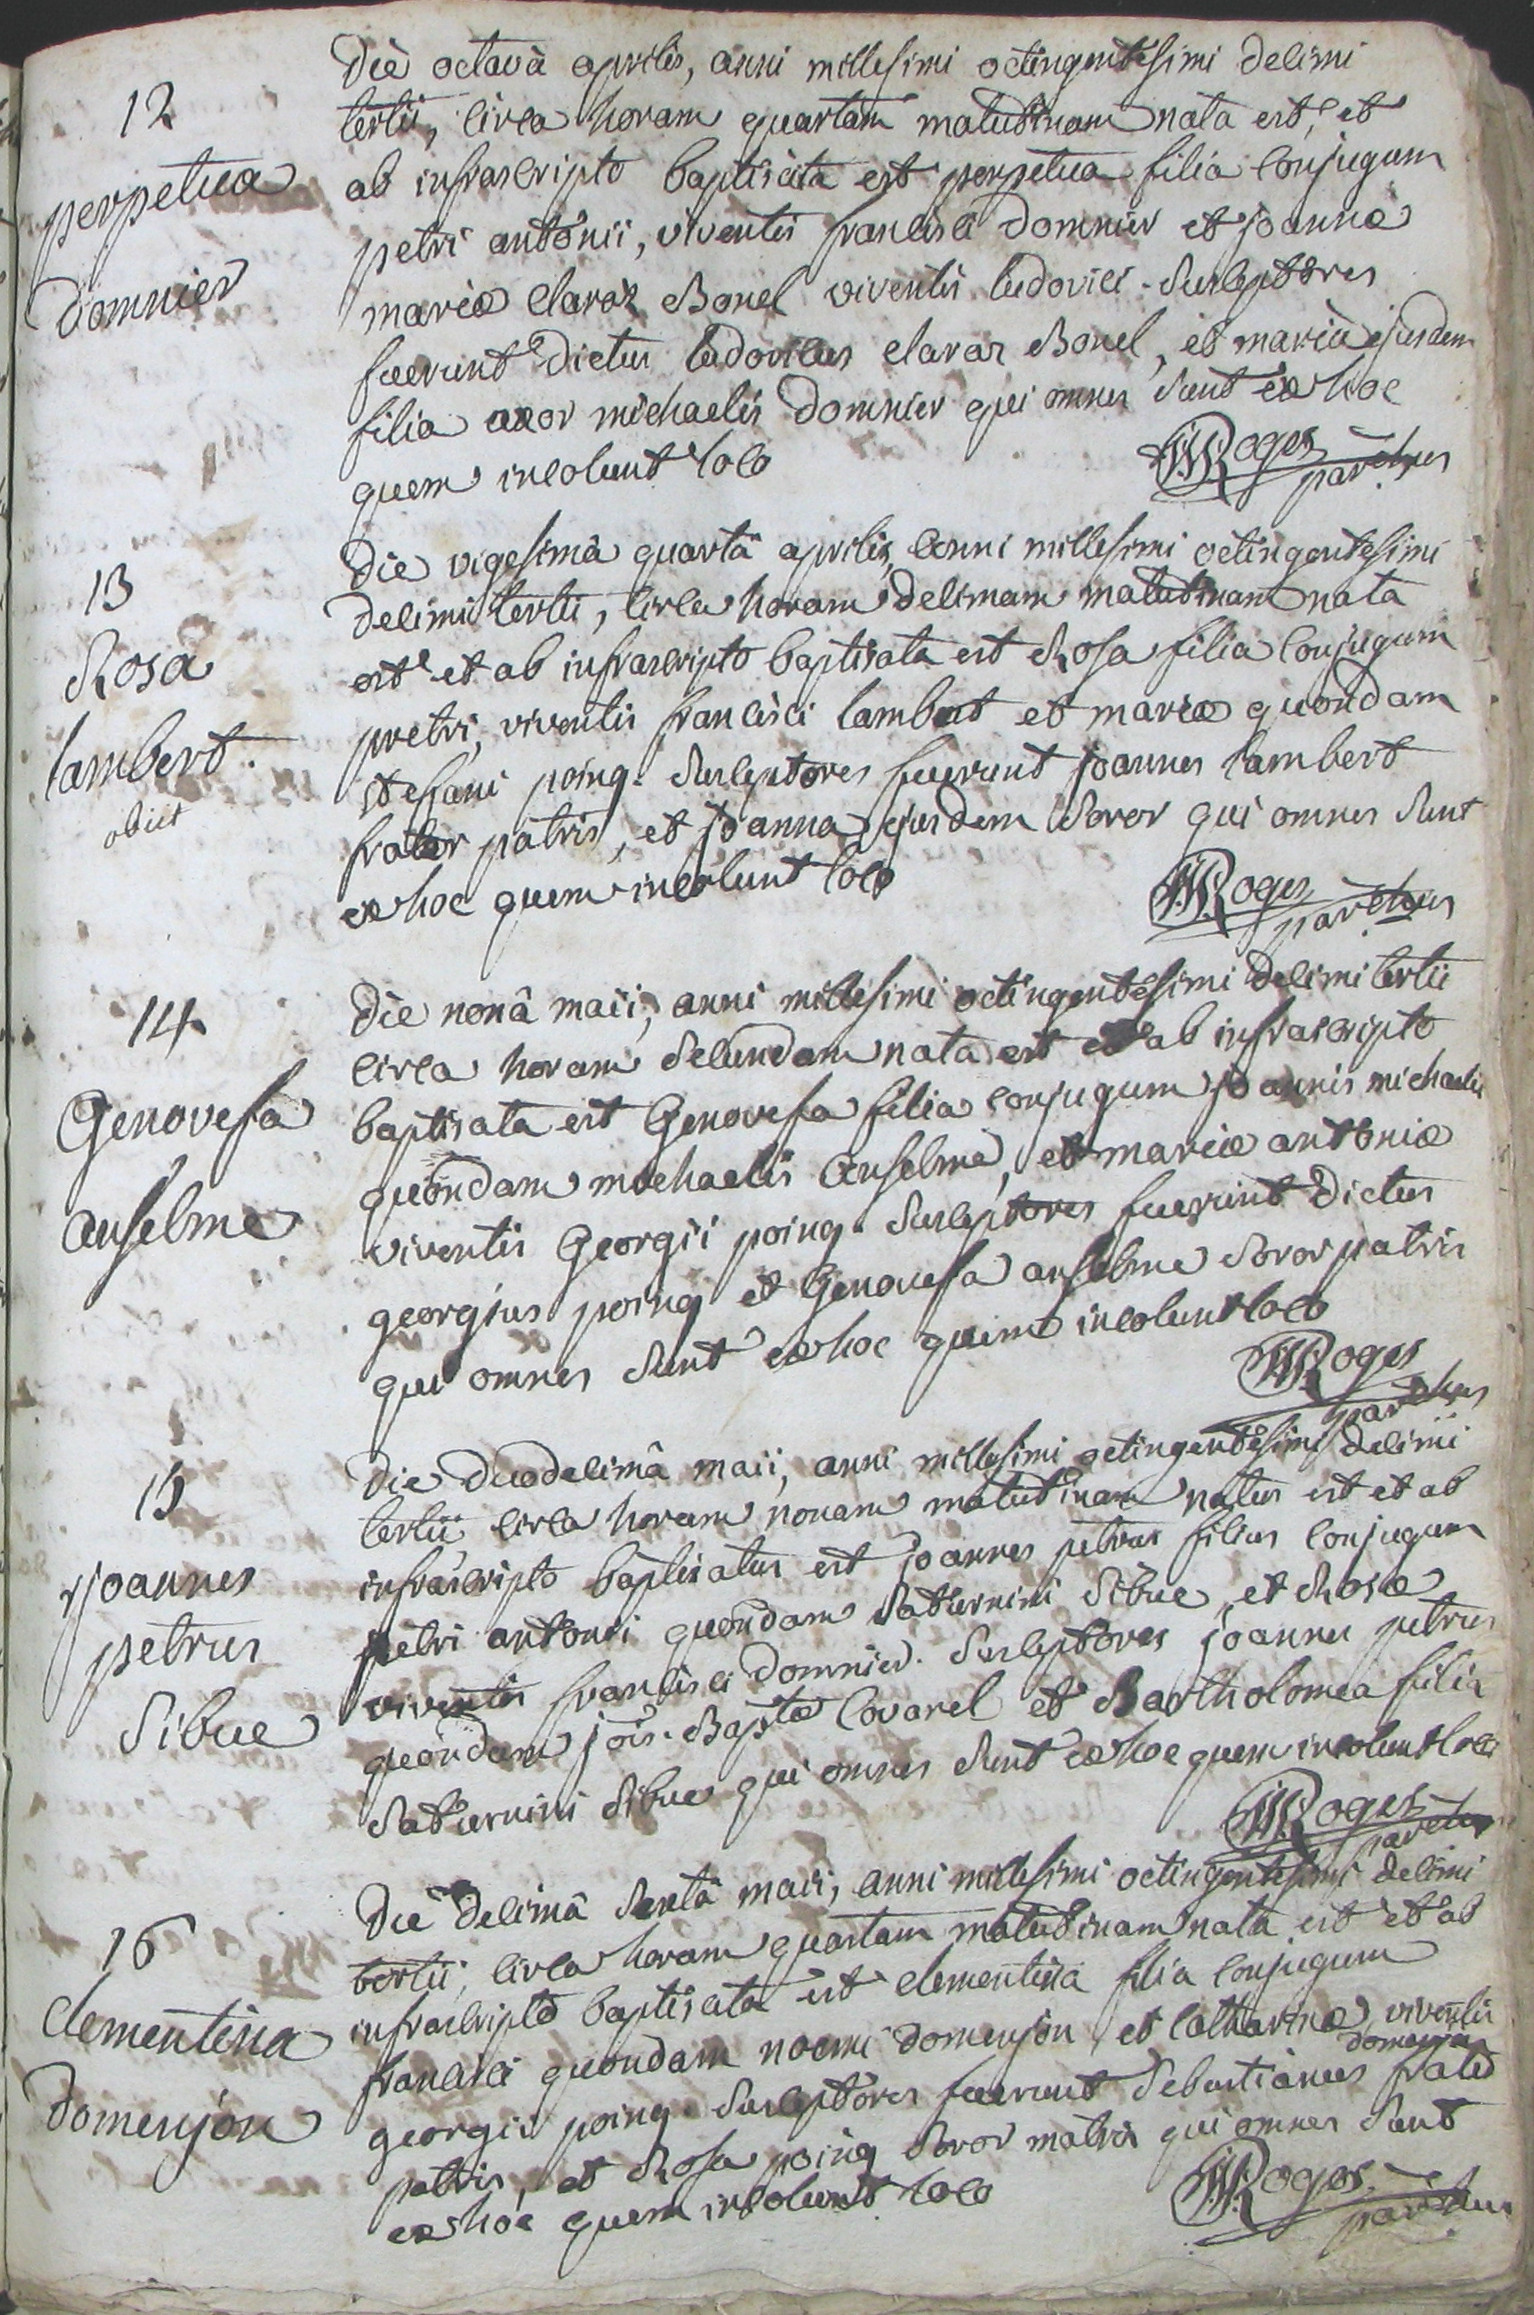 12
perpetua
Domnier
Die octavâ aprilis, anni millesimi octingentesimi decimi
tertii, circa horam quartam matutinam nata est, et
ab infrascripto baptisata est perpetua filia conjugum
petri antonii, viventis francisci Domnier et joannæ
mariæ claraz Bonel viventis ludovici. Susceptores
fuerunt Dictus ludovicus claraz Bonel, et maria ejusdem
filia uxor michaelis Domnier qui omnes sunt ex hoc
quem incolunt loco
Roges
parochus
13
Rosa
lambert.
obiit
Die vigesimâ quartâ aprilis, anni millesimi octingentesimi
decimi tertii, circa horam decimam matutinam nata
est et ab infrascripto baptisata est Rosa filia conjugum
pretri, viventis francisci lambert et mariæ quondam
stefani poing. Susceptores fuerunt joannes lambert
frater patris, et joanna ejusdem soror qui omnes sunt
ex hoc quem incolunt loco
Roges
parochus
14
Genovefa
anselme
Die nonâ maii, anni millesimi octingentesimi decimi tertii
circa horam secundam nata est et ab infrascripto
baptisata est Genovefa filia conjugum joannis michaelis
quondam michaelis anselme, et mariæ antoniæ
viventis Georgii poing. Susceptores fuerunt Dictus
georgius poing et Genovefa anselme soror patris
qui omnes sunt ex hoc quem incolunt loco
Roges
parochus
15
joannes
petrus
Sibue
Die duodecimâ maii, anni millesimi octingentesimi decimi
tertii, circa horam nonam matutinam natus est et ab
infrascripto baptisatus est joannes petrus filius conjugum
petri antonii quondam saturnini Sibue, et Rosæ
viventis francisci Domnier. Susceptores joannes petrus
quondam jois. Baptæ covarel et Bartholomea filia
Saturnini Sibue qui omnes sunt ex hoc quem incolunt loco
Roges
parochus
16
clementina
Domenjon
Die decimâ sextâ maii, anni millesimi octingentesimi decimi
tertii, circa horam quartam matutinam nata est et ab
infrascripto baptisata est clementina filia conjugum
francisci quondam noemi Domenjon, et catharinæ viventis
georgii poing. Susceptores fuerunt Sebastianus Domenjon frater
patris, et Rosa poing soror matris qui omnes sunt
ex hoc quem incolunt loco
Roges
parochus